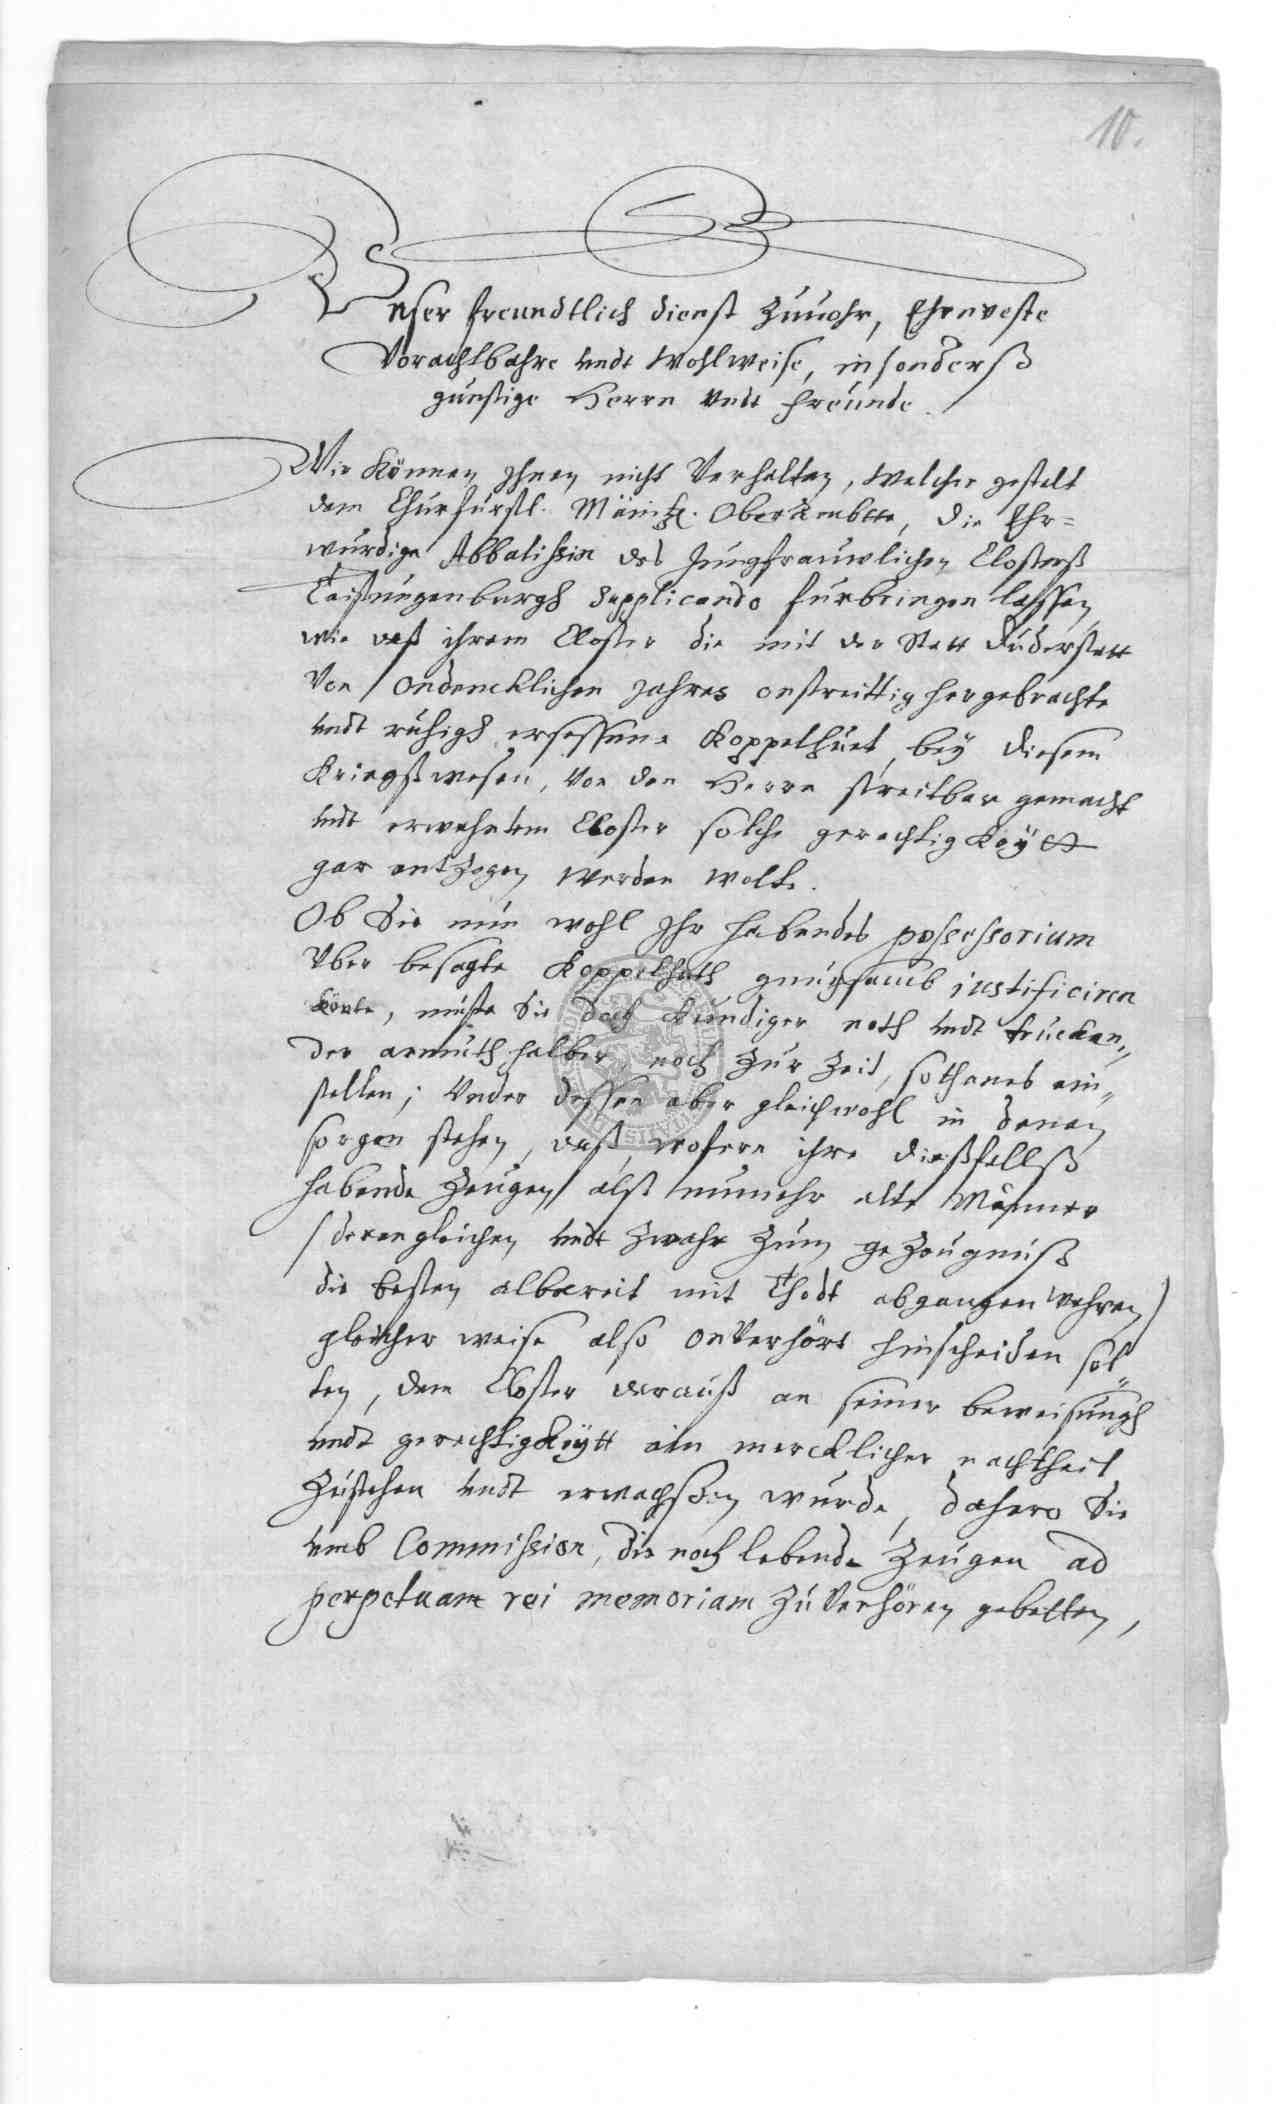 10.
Unser freundtlich dienst zuuohr, Ehrnveste
Vorachtbahre undt Wohlweise, insonderß
günstige Herrn undt freunde.
Wir können ihnen nicht Verhalten, Welcher gestalt
dem Churfürstl. Mäintz. Oberambtte, die Ehr-
würdige Abbatissin des Jungfrauwlichen Closterß
Teistungenburgh supplicando fürbringen lassen,
wie daß ihrem Closter die mit der Statt Duderstatt
Von ondencklichen Jahres onstreittig hergebrachte
undt ruhigh ersessene Koppelhuet, bey diesem
Kriegßwesen, Von den Herrn streitbar gemacht
undt erwehntem Closter solche gerechtigkeytt
gar entzogen werden wolte.
Ob Sie nun wohl Ihr habendes possessorium
Uber besagte Koppelhuth gnugsamb iustificiren
könte, müste Sie doch kundiger noth undt trucken„
der armuth halber noch zur Zeit, sothanes ein„
stellen; Under dessen aber gleichwohl in denen
sorgen stehen, daß wofern ihre dießfallß
habende Zeugen alß nunmehr alte Männer
/derengleichen undt zwahr zum gezeugnuß
die besten albereit mit Thodt abgangen wehren/
gleicher weise also onVerhört hinscheiden sol„
ten, dem Closter darauß an seiner beweisungh
undt gerechtigkeytt ein mercklicher nachtheil
zustehen undt erwachßen wurde, dahero Sie
umb Commission, die noch lebende Zeugen ad
perpetuam rei memoriam zuVerhören gebetten,